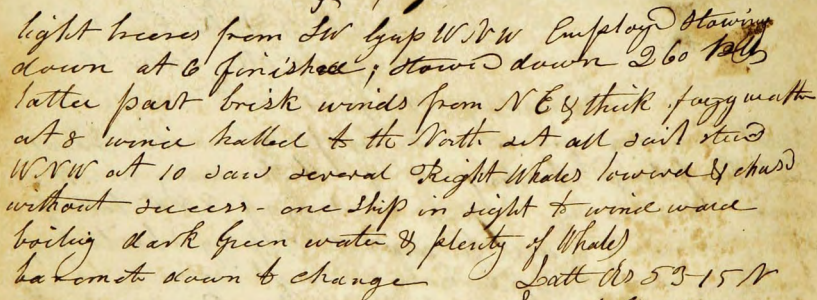 light breeses from SW Gap WNW Employd stowing
down at 6 finished; stowed down 260 bbls
latter part brisk winds from NE & thick foggy weather
at 8 wind halled to the North set all sail steerd
WNW at 10 saw several Right Whales lowerd & chasd
without sucess - one ship in sight to wind ward
boiling dark Green water & plenty of Whales
baromet down to change Latt Obs 53-15 N